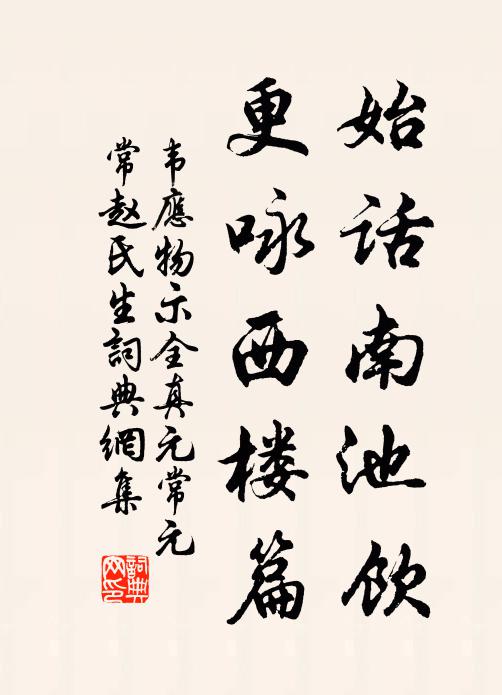 始话南池饮
更咏西楼篇
韦應物示全真元常元
常赵氏生詞典網集
詞典
网